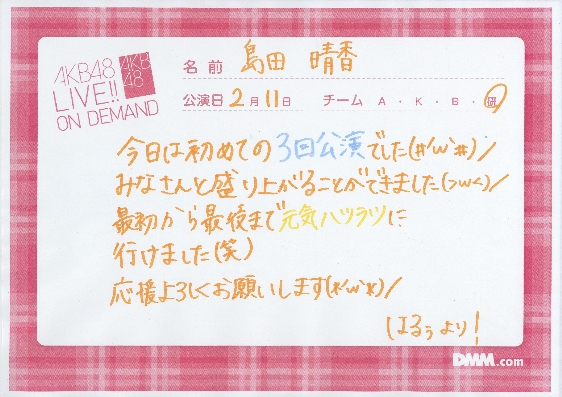 AKB48
LIVE!!
ON DEMAND
AKB
48
名前 島田 晴香
公演日 2月11日 チーム A・K・B・研
今日は初めての3回公演でした(#'ω`#)/
みなさんと盛り上がることができました(>ω<)/
最初から最後まで元気ハツラツに
行けました(笑)
応援よろしくお願いします(*'ω`*)/
はるぅより!
DMM.com